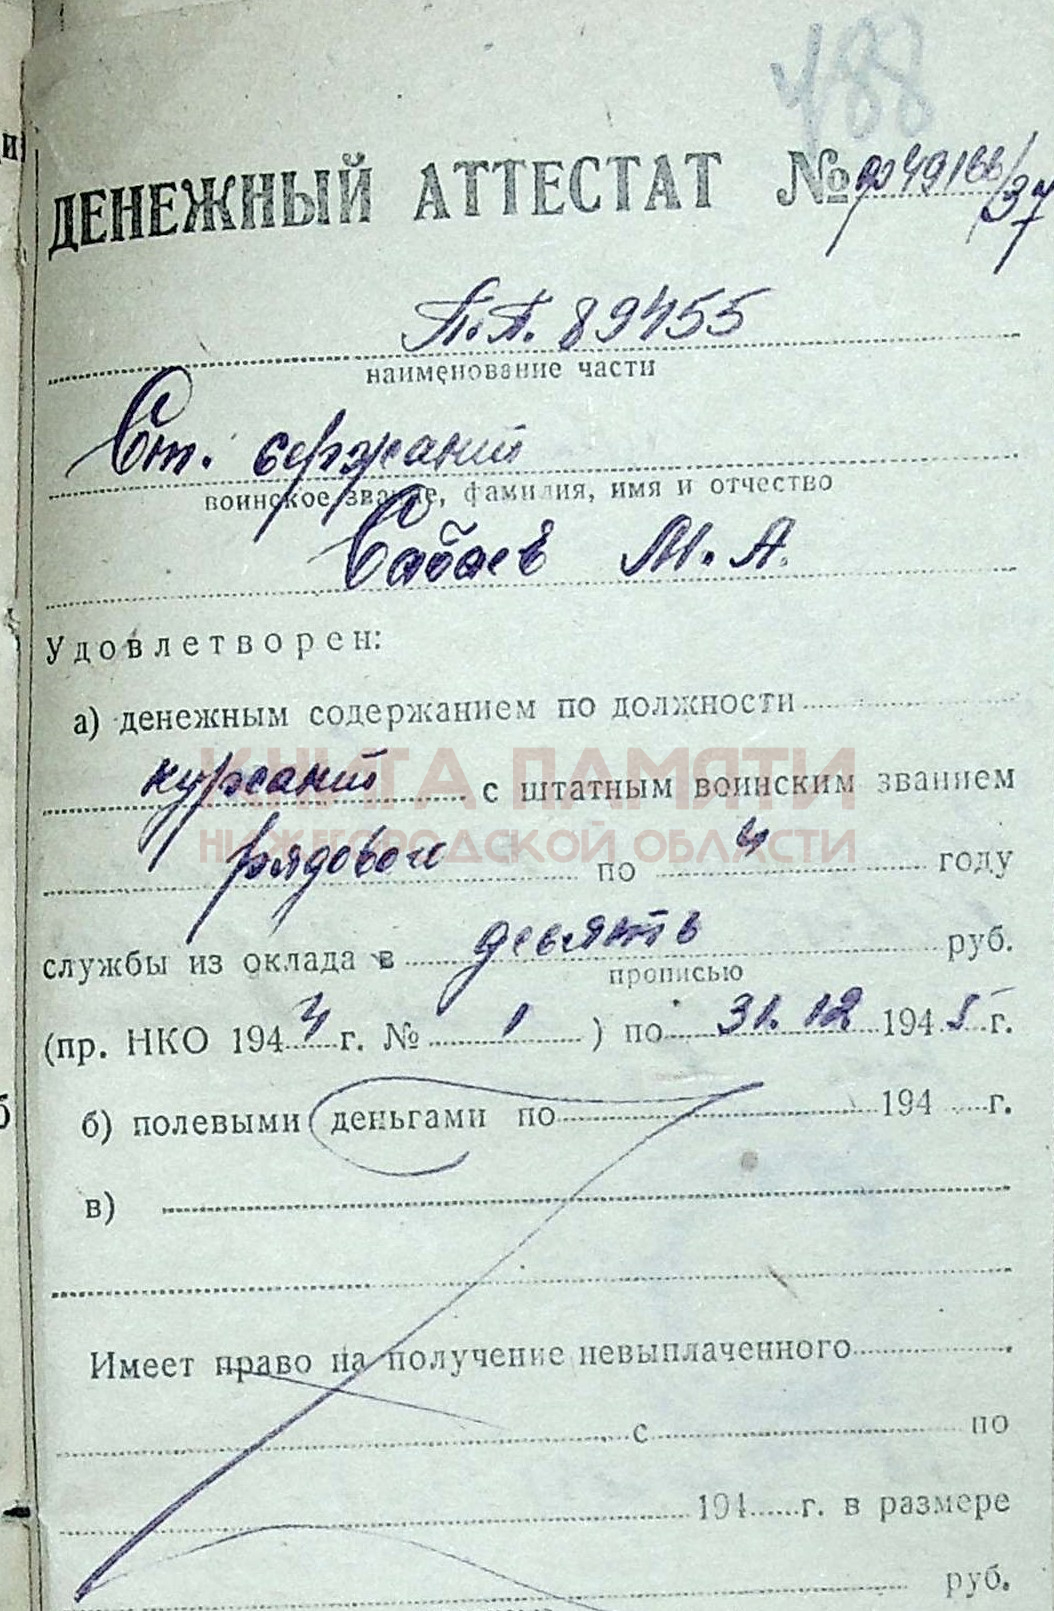 488
ДЕНЕЖНЫЙ АТТЕСТАТ № 049166/37
П.П. 89455
наименование части
Ст. сержант
воинское звание, фамилия, имя и отчество
Сабаев М. А.
Удовлетворен:
а) денежным содержанием по должности
курсант с штатным воинским званием
КНИГА ПАМЯТИ
НИЖЕГОРОДСКОЙ ОБЛАСТИ
рядовой по 4 году
службы из оклада в девять руб.
прописью
(пр. НКО 1944 г. № 1 ) по 31.12 1945 г.
б) полевыми деньгами по 194 г.
в)
Имеет право на получение невыплаченного
с по
194 г. в размере
руб.